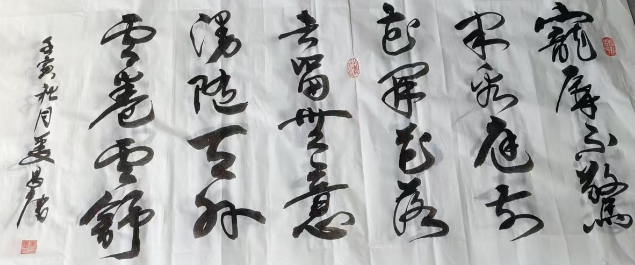 寵辱不驚
閑看庭前
花開花落
去留無意
漫隨天外
雲卷雲舒
壬寅秋月姜